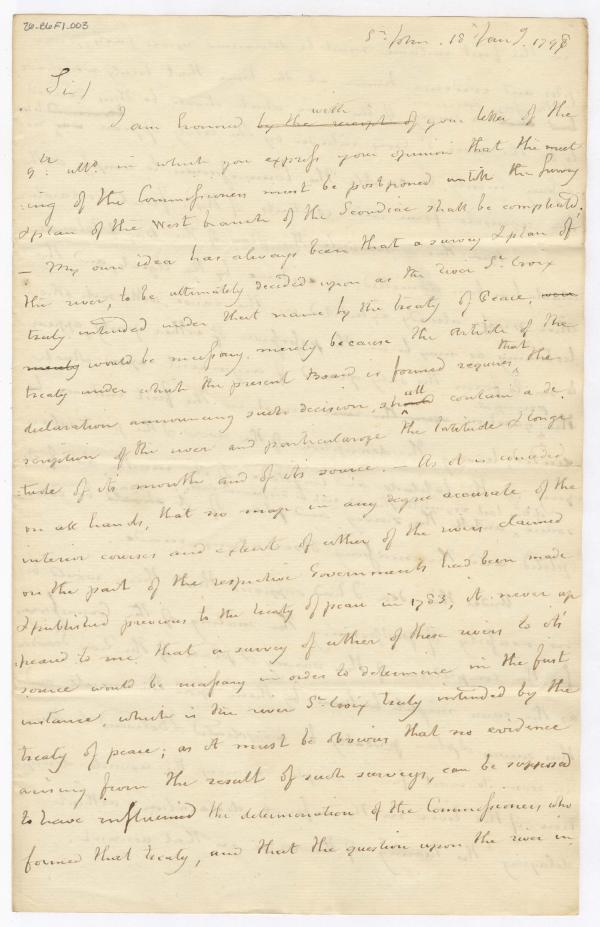 26-86F1-003
St. John. 18th Jany. 1798
Sir/
with
I am honored by the receipt of your letter of the
9th. ulto. in which you express your opinion that the meet
:ing of the Commissioners must be postponed untill the Survey
& plan of the West branch of the Scoudiac shall be compleated;
— My own idea has always been that a survey & plan of
the river, to be ultimately decided upon as the river St. Croix
truly intended under that name by the treaty of Peace,
merely would be necessary merely because the Article of the
that
treaty under which the present Board is formed requires the
all
declaration announcing such decision, should contain a de
scription of the river and particularize the latitude & longi
:tude of its mouth and of its source. — As it is conceded
on all hands, that no map in any degree accurate of the
interior courses and extent of either of the rivers claimed
on the part of the respective Governments had been made
& published previous to the treaty of peace in 1783, it never ap
:peared to me that a survey of either of these rivers to its
source would be necessary in order to determine in the first
instance, which is the river St. Croix truly intended by the
treaty of peace; as it must be obvious that no evidence
arising from the result of such surveys, can be supposed
to have influenced the determination of the Commissioners who
formed that treaty, and that the question upon the river in